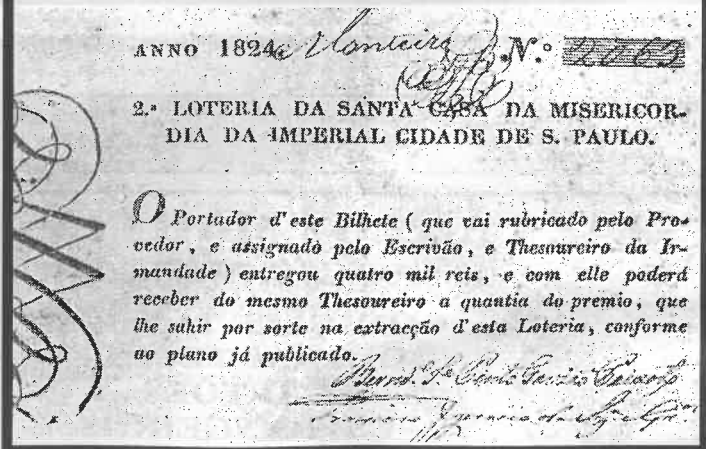 ANNO 1824. Monteiro N.º 2063
2.ª LOTERIA DA SANTA CASA DA MISERICOR-
DIA DA IMPERIAL CIDADE DE S. PAULO.
O Portador d'este Bilhete ( que vai rubricado pelo Pro-
vedor, e assignado pelo Escrivão, e Thesoureiro da Ir-
mandade ) entregou quatro mil reis, e com elle poderá
receber do mesmo Thesoureiro a quantia do premio, que
lhe sahir por sorte na extracção d'esta Loteria, conforme
ao plano já publicado.